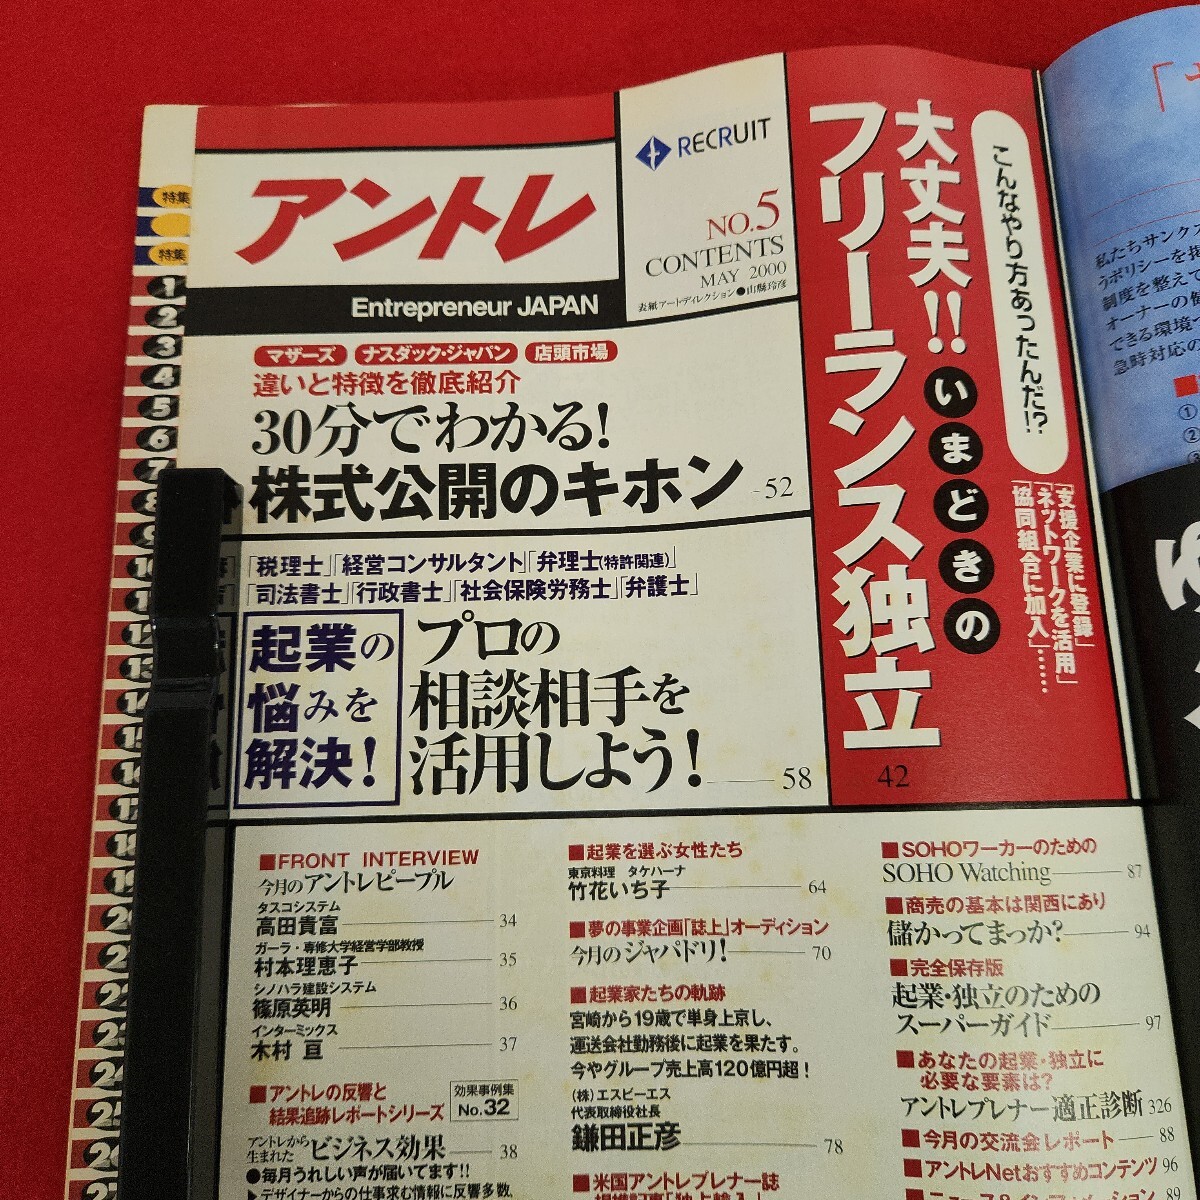 アントレ
Entrepreneur JAPAN
RECRUIT
NO.5
CONTENTS
MAY 2000
表紙アートディレクション●山縣玲彦
こんなやり方あったんだ!?
大丈夫!!いまどきの
フリーランス独立
42
「支援企業に登録」
「ネットワークを活用」
「協同組合に加入」……
マザーズ ナスダック・ジャパン 店頭市場
違いと特徴を徹底紹介
30分でわかる!
株式公開のキホン 52
「税理士」「経営コンサルタント」「弁理士(特許関連)」
「司法書士」「行政書士」「社会保険労務士」「弁護士」
起業の
悩みを
解決!
プロの
相談相手を
活用しよう! 58
■FRONT INTERVIEW
今月のアントレピープル
タスコシステム
高田貴富 34
ガーラ・専修大学経営学部教授
村本理恵子 35
シノハラ建設システム
篠原英明 36
インターミックス
木村 亘 37
■アントレの反響と
結果追跡レポートシリーズ
効果事例集
No.32
アントレから
生まれた ビジネス効果 38
●毎月うれしい声が届いてます!!
▶デザイナーからの仕事求む情報に反響多数、
■起業を選ぶ女性たち
東京料理 タケハーナ
竹花いち子 64
■夢の事業企画「誌上」オーディション
今月のジャパドリ! 70
■起業家たちの軌跡
宮崎から19歳で単身上京し、
運送会社勤務後に起業を果たす。
今やグループ売上高120億円超!
(株)エスピーエス
代表取締役社長
鎌田正彦 78
■米国アントレプレナー誌
■SOHOワーカーのための
SOHO Watching 87
■商売の基本は関西にあり
儲かってまっか? 94
■完全保存版
起業・独立のための
スーパーガイド 97
■あなたの起業・独立に
必要な要素は?
アントレプレナー適正診断 326
■今月の交流会レポート 88
■アントレNetおすすめコンテンツ 96
特集
特集
1
2
3
4
5
6
7
8
9
私たちサンクス
制度を整えて
オーナーの
できる環境
急時対応の
①
②
③